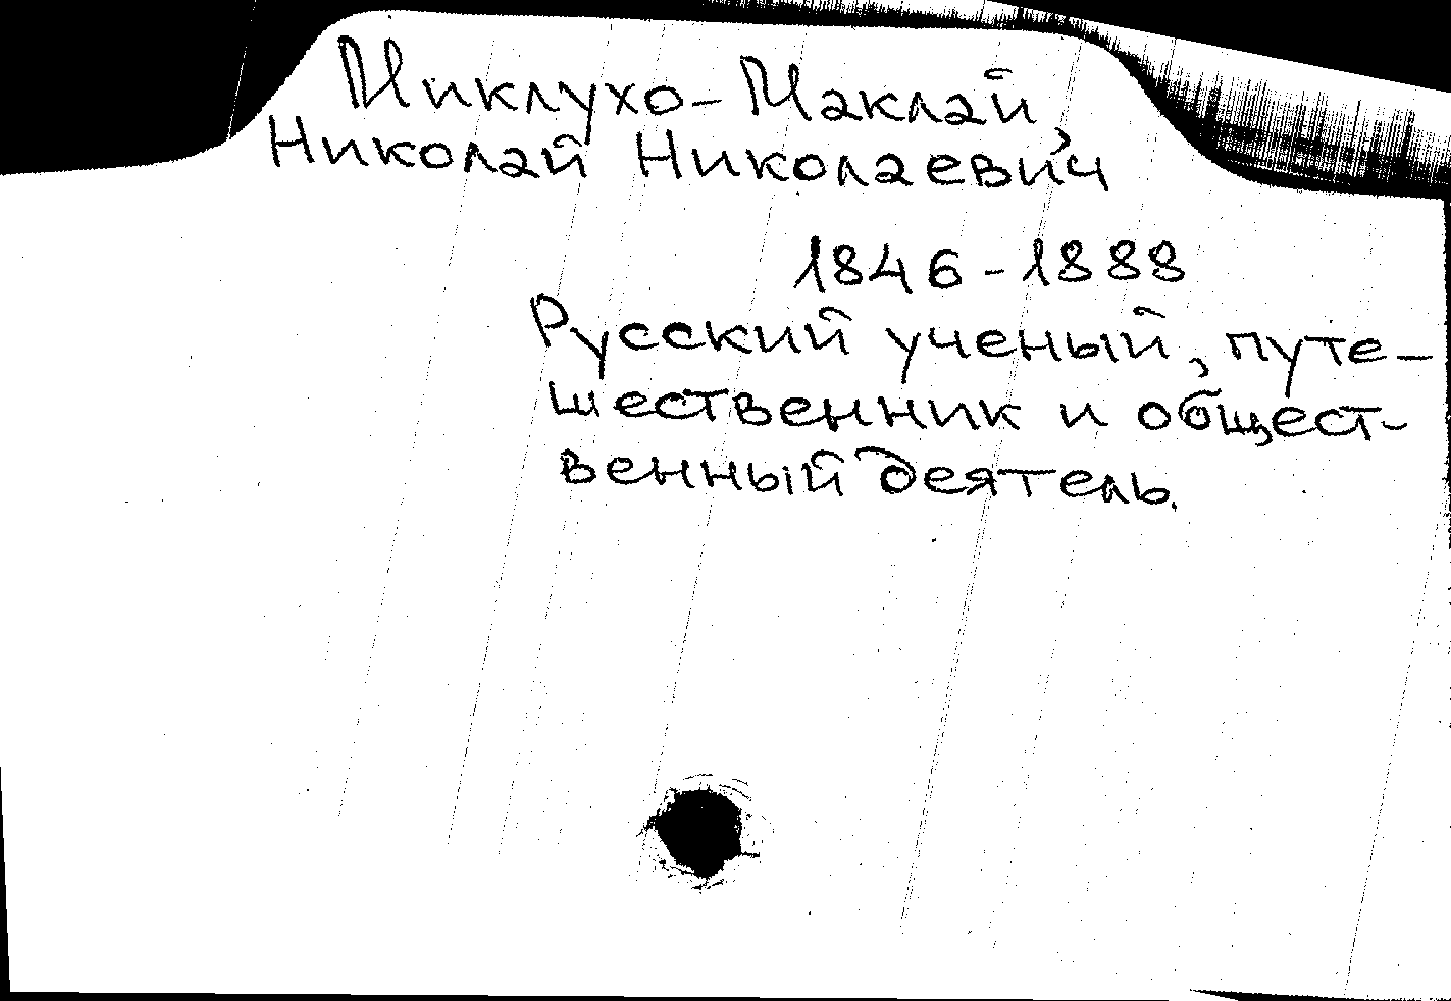 Миклухо-Маклай,
Николай Николаевич
1846-1888
Русский ученый, путе-
шественник и общест-
венный деятель.